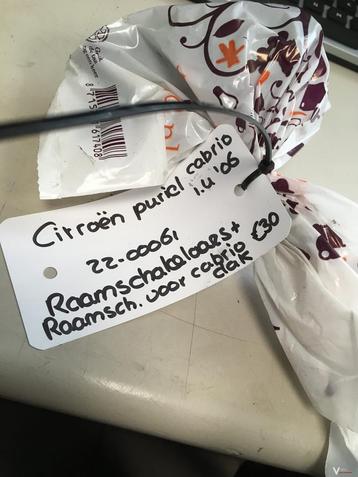 Citroën puriel cabrio
1.4 '06
22-00061
Raamschakelaars+
Raamsch. voor cabrio
dak
€30